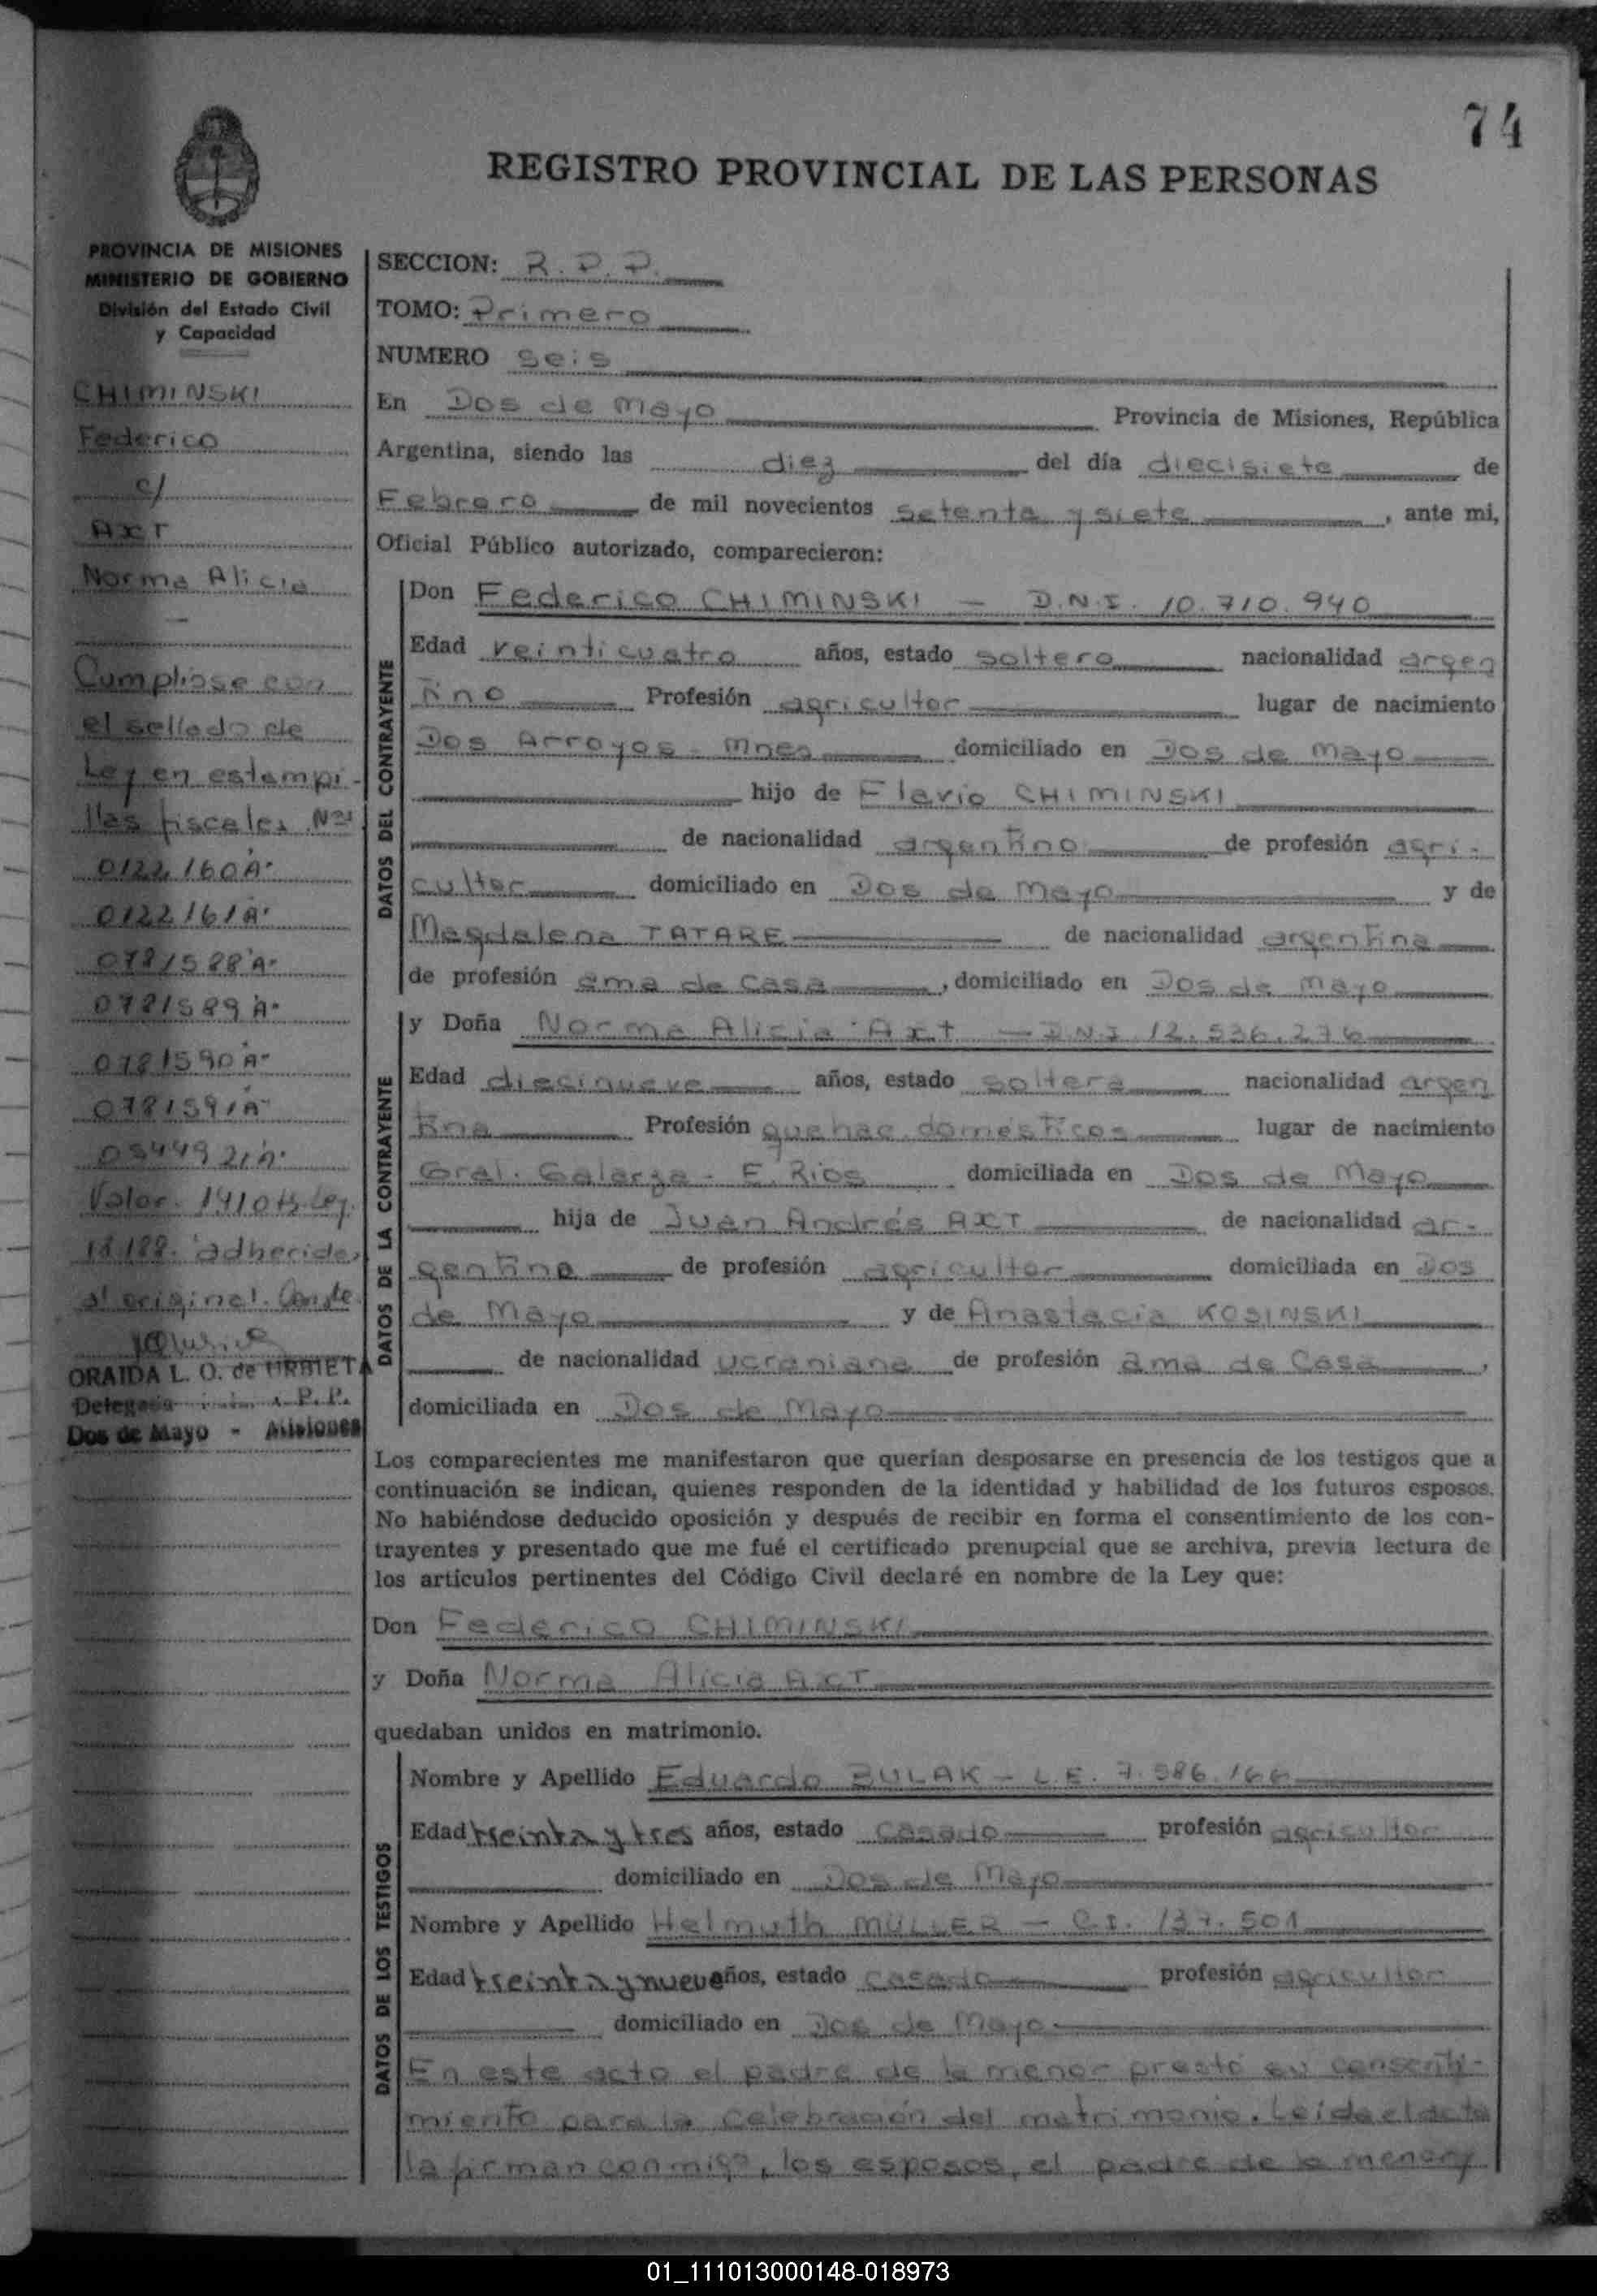 74
REGISTRO PROVINCIAL DE LAS PERSONAS
PROVINCIA DE MISIONES
MINISTERIO DE GOBIERNO
División del Estado Civil
y Capacidad
CHIMINSKI
Federico
c/
AXT
Norma Alicia
Cumpliose con
el sellado de
Ley en estampi-
llas fiscales Nos
0122160A.
0122161A.
0781588A.
0781589A.
0781590A.
0781591A.
Valor. Ley
adheridas
al original. Conste.
ORAIDA L. O. de URRIETA
Delegada R. P. P.
Dos de Mayo - Misiones
SECCION: R. P. P.
TOMO: Primero
NUMERO Seis
En Dos de Mayo Provincia de Misiones, República
Argentina, siendo las diez del día diecisiete de
Febrero de mil novecientos setenta y siete, ante mi,
Oficial Público autorizado, comparecieron:
DATOS DEL CONTRAYENTE
Don Federico CHIMINSKI - D.N.I. 10.710.940
Edad veinticuatro años, estado soltero nacionalidad argen
tino Profesión agricultor lugar de nacimiento
Dos Arroyos - Mnes domiciliado en Dos de Mayo
hijo de Flavio CHIMINSKI
de nacionalidad argentino de profesión agri-
cultor domiciliado en Dos de Mayo y de
Magdalena TATARE de nacionalidad argentina
de profesión ama de casa, domiciliado en Dos de Mayo
DATOS DE LA CONTRAYENTE
y Doña Norma Alicia Axt - D.N.I. 12.536.276
Edad diecinueve años, estado soltera nacionalidad argen
tina Profesión quehac. domésticos lugar de nacimiento
Gral. Galarza - E. Rios domiciliada en Dos de Mayo
hija de Juan Andrés AXT de nacionalidad ar-
gentino de profesión agricultor domiciliada en Dos
de Mayo y de Anastacia KOSINSKI
de nacionalidad ucraniana de profesión ama de Casa,
domiciliada en Dos de Mayo
Los comparecientes me manifestaron que querían desposarse en presencia de los testigos que a
continuación se indican, quienes responden de la identidad y habilidad de los futuros esposos.
No habiéndose deducido oposición y después de recibir en forma el consentimiento de los con-
trayentes y presentado que me fué el certificado prenupcial que se archiva, previa lectura de
los artículos pertinentes del Código Civil declaré en nombre de la Ley que:
Don Federico CHIMINSKI
y Doña Norma Alicia AXT
quedaban unidos en matrimonio.
DATOS DE LOS TESTIGOS
Nombre y Apellido Eduardo BULAK - L.E. 7.586.166
Edad treinta y tres años, estado casado profesión agricultor
domiciliado en Dos de Mayo
Nombre y Apellido Helmuth MULLER - C.I. 137.501
Edad treinta y nueve años, estado casado profesión agricultor
domiciliado en Dos de Mayo
En este acto el padre de la menor prestó su consenti-
miento para la celebración del matrimonio. Leida el acta
la firman conmigo, los esposos, el padre de la menor y
01_111013000148-018973